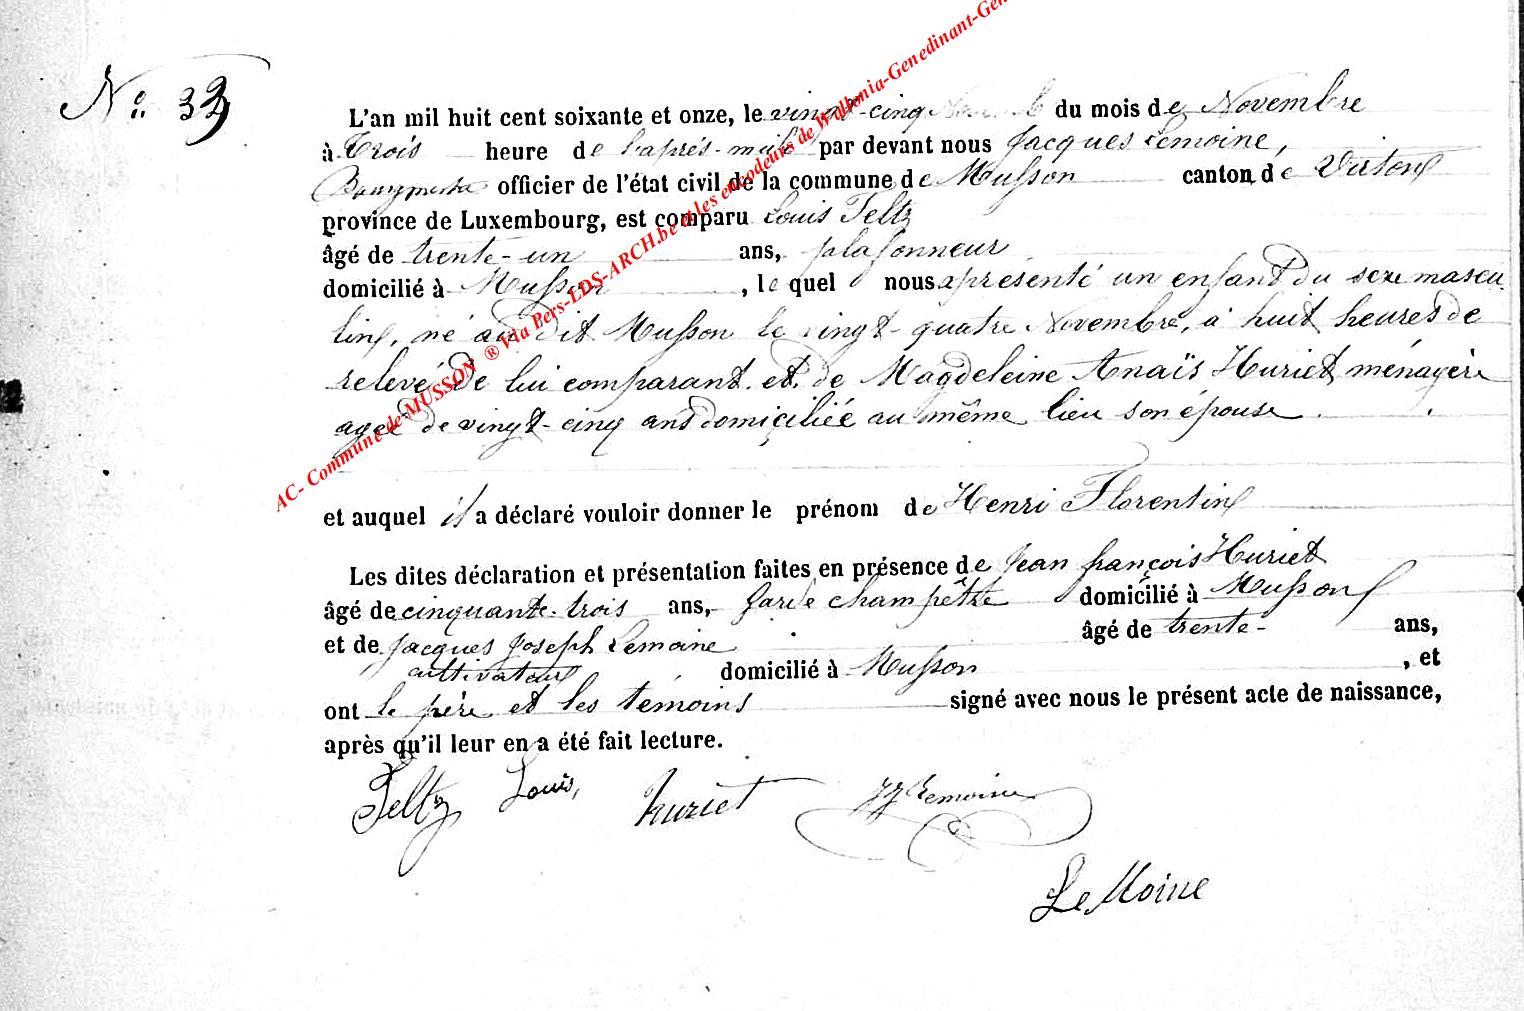 N° 33
L'an mil huit cent soixante et onze, le vingt-cinq du mois de Novembre
à Trois heure de l'après-midi par devant nous Jacques Lemoine,
Bourgmestre officier de l'état civil de la commune de Musson canton de Virton
province de Luxembourg, est comparu Louis Feltz
âgé de trente-un ans, plafonneur
domicilié à Musson, le quel nous a présenté un enfant du sexe mascu
lin, né au dit Musson le vingt-quatre Novembre, à huit heures de
relevé, de lui comparant et de Magdeleine Anaïs Huriet ménagère
agée de vingt-cinq ans domiciliée au même lieu son épouse.
et auquel il a déclaré vouloir donner le prénom de Henri Florentin
Les dites déclaration et présentation faites en présence de Jean françois Huriet
âgé de cinquante-trois ans, Garde champêtre domicilié à Musson
et de Jacques Joseph Lemoine âgé de trente- ans,
cultivateur domicilié à Musson, et
ont le père et les témoins signé avec nous le présent acte de naissance,
après qu'il leur en a été fait lecture.
Feltz Louis, huriet JJ Lemoine
LeMoine
AC- Commune de MUSSON ® Via Pers-LDS-ARCH.be et les encodeurs de Wallonia-Genedinant-Gen